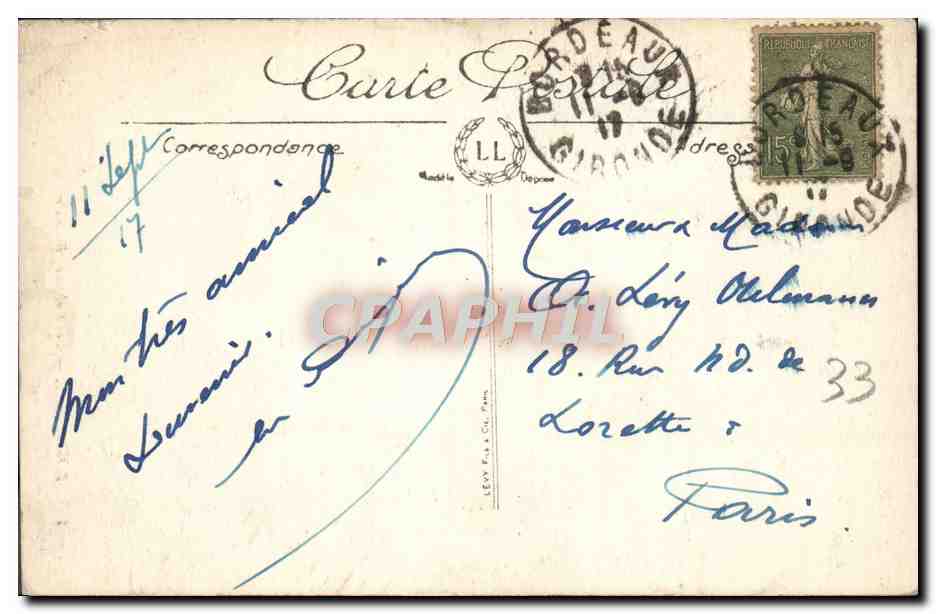 Carte Postale
Correspondance
Adresse
LL
Modèle Déposé
BORDEAUX
11 - 9
17
GIRONDE
REPUBLIQUE FRANÇAISE
15c
BORDEAUX
11 - 9
GIRONDE
11 Sept
17
Mon très amical
Souvenir.
Monsieur & Madame
Lévy
18. Rue N.D. de
Lorette
Paris.
33
LÉVY Fils & Cie, Paris
CPAPHIL